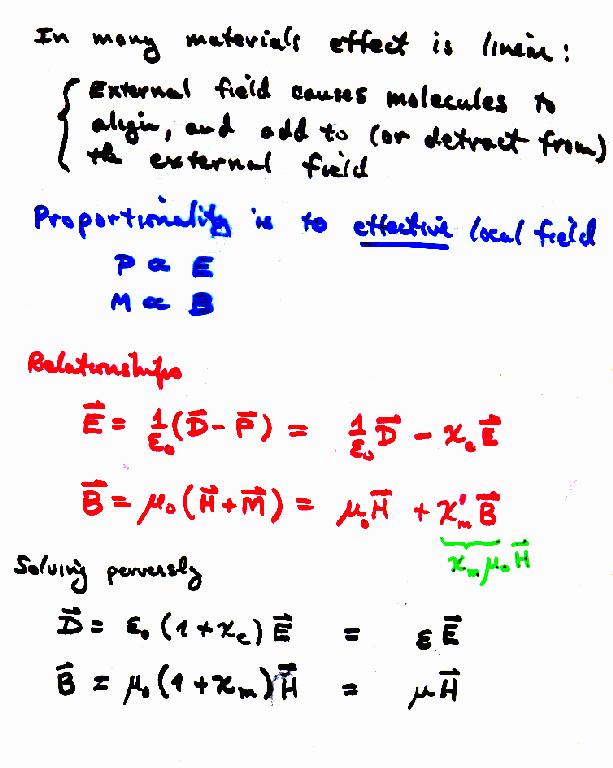 In many materials effect is linear:
External field causes molecules to
align, and add to (or detract from)
the external field
Proportionality is to effective local field
P ∝ E
M ∝ B
Relationships
E⃗ = 1/ε₀ (D⃗ - P⃗) = 1/ε₀ D⃗ - χₑ E⃗
B⃗ = μ₀ (H⃗ + M⃗) = μ₀ H⃗ + χ'ₘ B⃗
χₘ μ₀ H⃗
Solving perversly
D⃗ = ε₀ (1 + χₑ) E⃗ = ε E⃗
B⃗ = μ₀ (1 + χₘ) H⃗ = μ H⃗